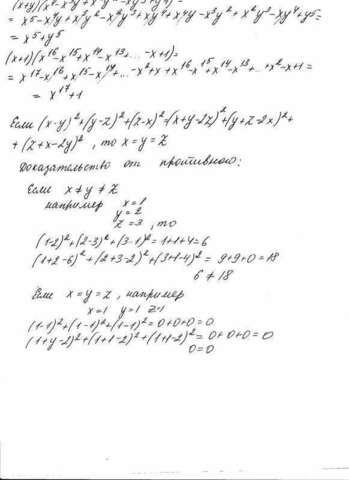 (x+y)(x⁴-x³y+x²y²-xy³+y⁴)=
= x⁵-x⁴y+x³y²-x²y³+xy⁴+x⁴y-x³y²+x²y³-xy⁴+y⁵=
= x⁵+y⁵
(x+1)(x¹⁶-x¹⁵+x¹⁴-x¹³+...-x+1)=
= x¹⁷-x¹⁶+x¹⁵-x¹⁴+...-x²+x+x¹⁶-x¹⁵+x¹⁴-x¹³+...+x²-x+1=
= x¹⁷+1
Если (x-y)²+(y-z)²+(z-x)²=(x+y-2z)²+(y+z-2x)²+
+(z+x-2y)², то x=y=z
Доказательство от противного:
Если x≠y≠z
например x=1
y=2
z=3, то
(1-2)²+(2-3)²+(3-1)²=1+1+4=6
(1+2-6)²+(2+3-2)²+(3+1-4)²=9+9+0=18
6≠18
Если x=y=z, например
x=1 y=1 z=1
(1-1)²+(1-1)²+(1-1)²=0+0+0=0
(1+1-2)²+(1+1-2)²+(1+1-2)²=0+0+0=0
0=0